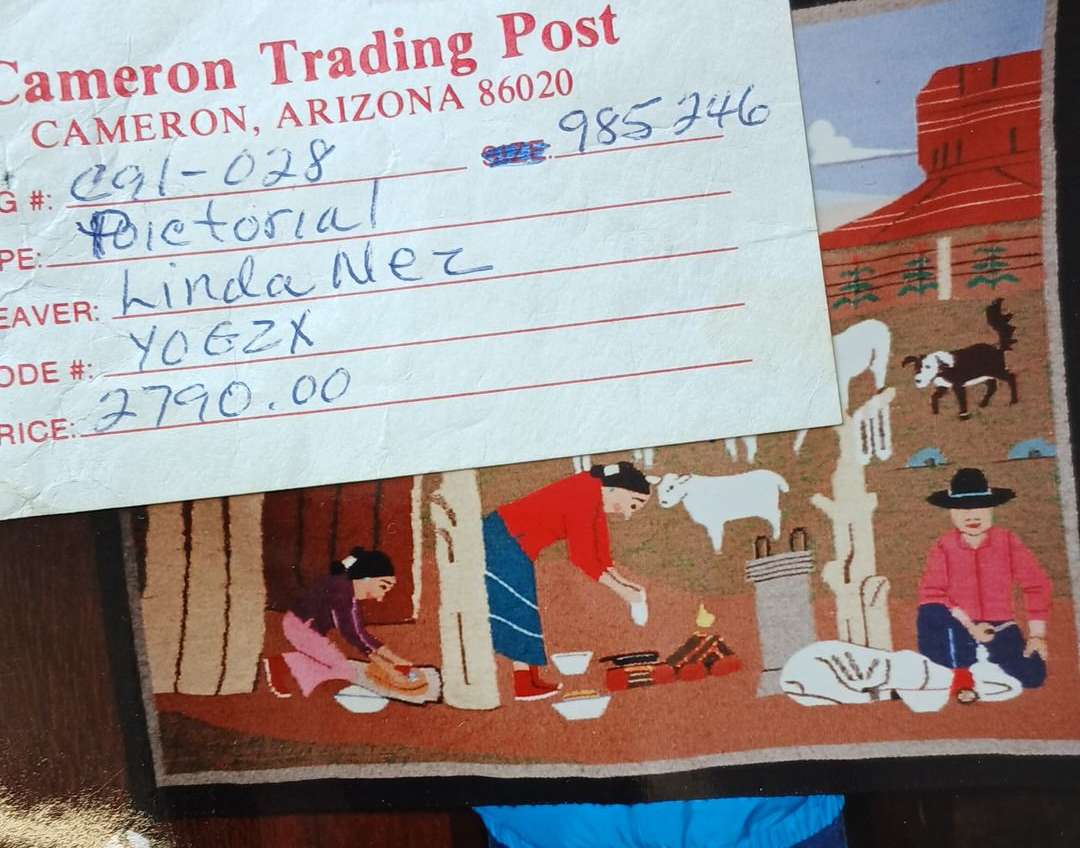 Cameron Trading Post
CAMERON, ARIZONA 86020
G #: C91-028 SIZE: 985246
PE: Pictorial
EAVER: Linda Nez
ODE #: YOEZX
RICE: 2790.00